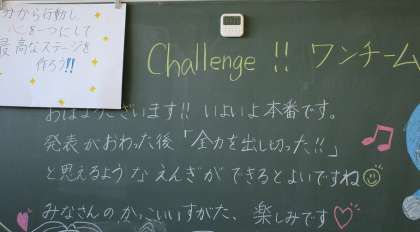 分から行動し
心を一つにして
最高なステージを
作ろう!!
Challenge !! ワンチーム
おはようございます!! いよいよ本番です。
発表がおわった後「全力を出し切った!!」
と思えるような えんぎが できるとよいですね
みなさんの かっこいいすがた、楽しみです